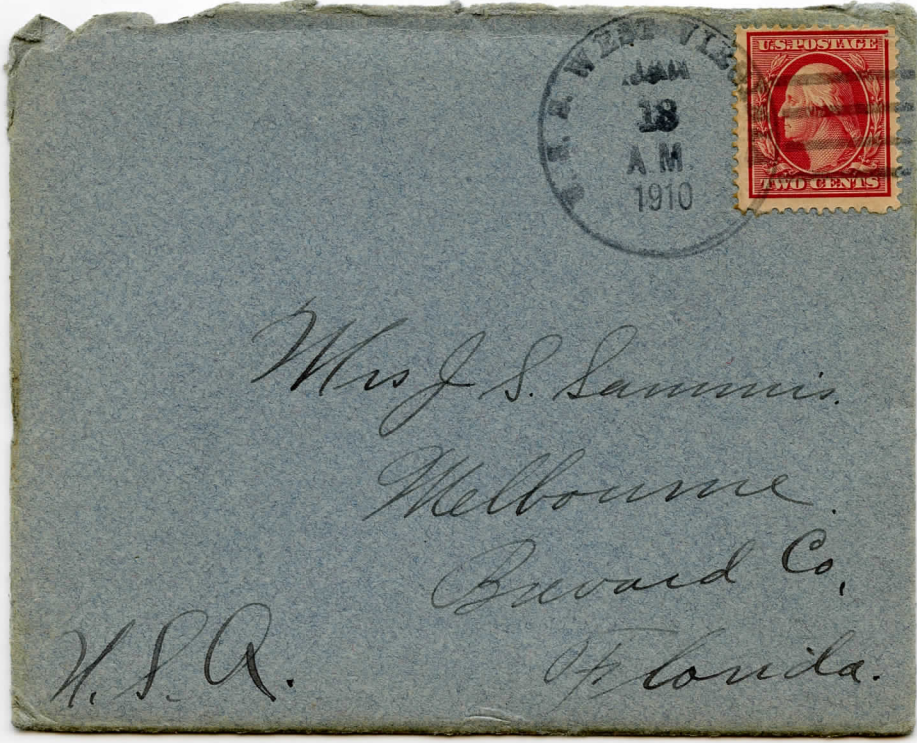 U.S.S. WEST VIRGINIA
JAN
18
A.M.
1910
U.S. POSTAGE
TWO CENTS
Mrs J. S. Sammis.
Melbourne.
Brevard Co,
Florida.
U.S.A.